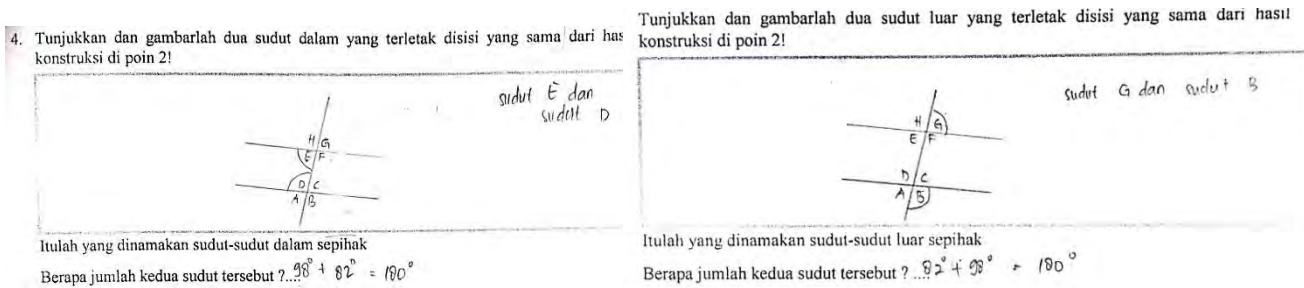 4. Tunjukkan dan gambarlah dua sudut dalam yang terletak disisi yang sama dari has
konstruksi di poin 2!
sudut E dan
sudut D
H G
E F
D C
A B
Itulah yang dinamakan sudut-sudut dalam sepihak
Berapa jumlah kedua sudut tersebut ?..98° + 82° = 180°
Tunjukkan dan gambarlah dua sudut luar yang terletak disisi yang sama dari hasil
konstruksi di poin 2!
sudut G dan sudut B
H G
E F
D C
A B
Itulah yang dinamakan sudut-sudut luar sepihak
Berapa jumlah kedua sudut tersebut ? ..82° + 98° = 180°